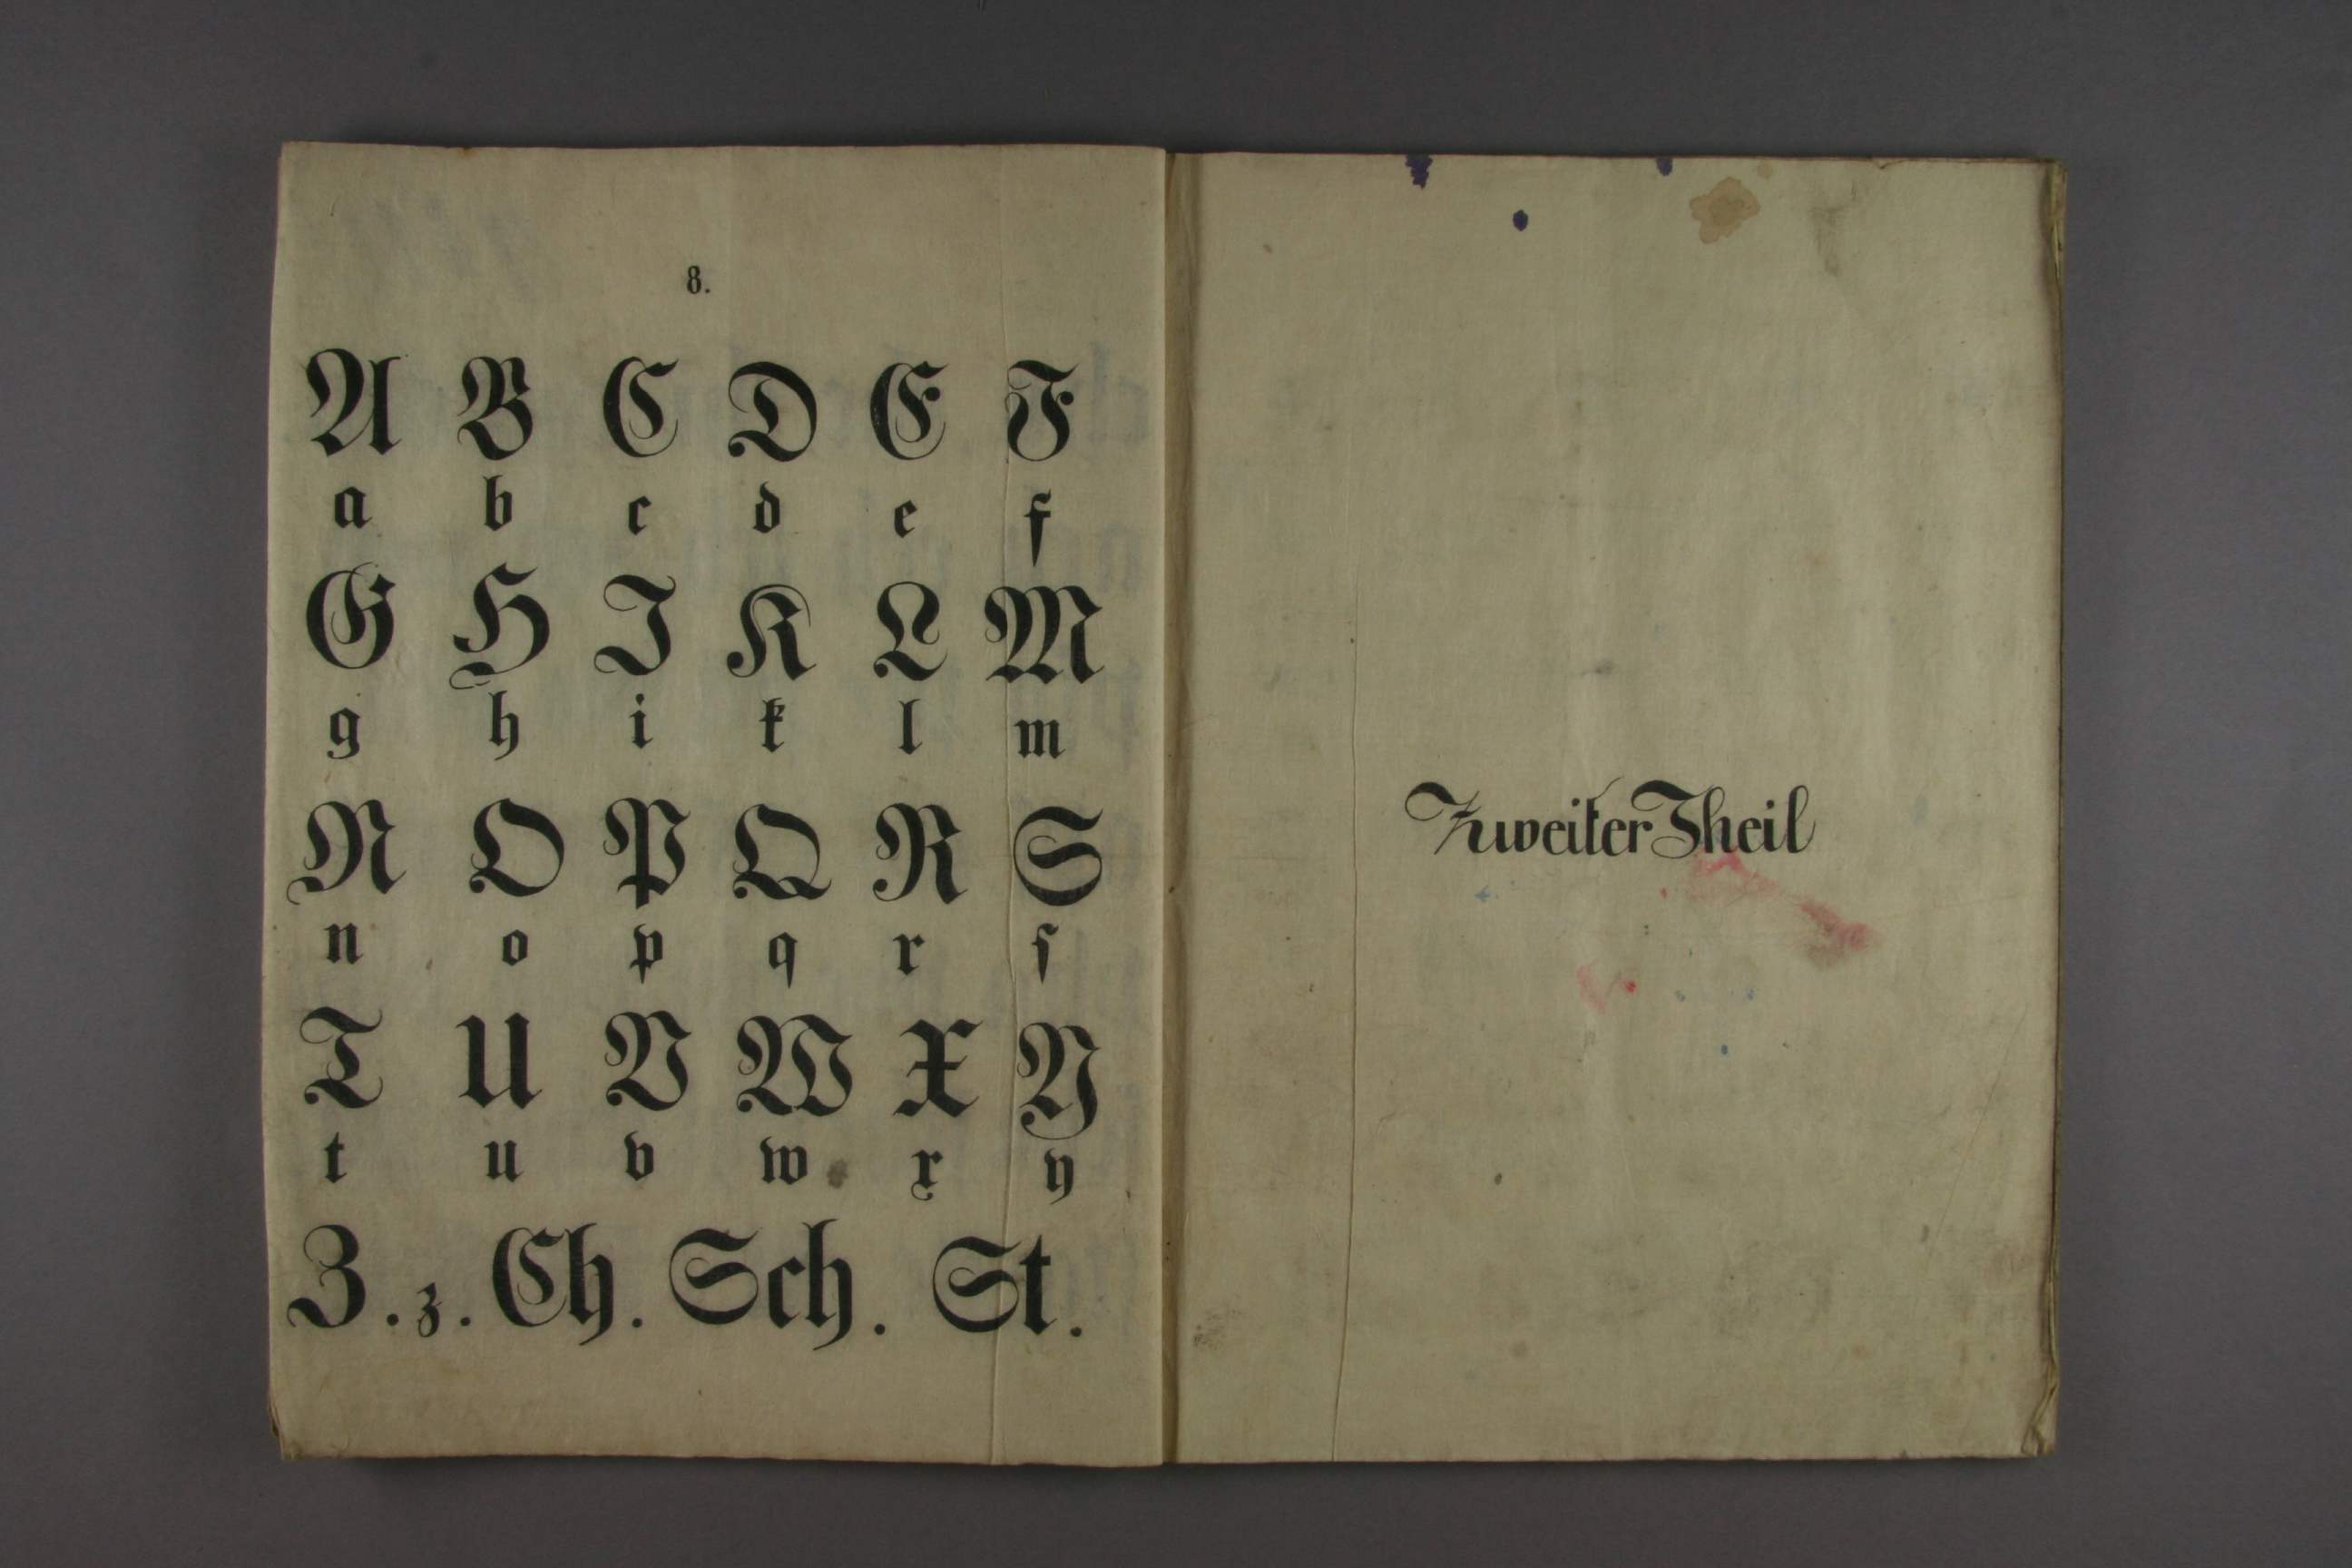 8.
A B C D E F
a b c d e f
G H I K L M
g h i k l m
N O P Q R S
n o p q r ſ
T U V W X Y
t u v w x y
Z. z. Ch. Sch. St.
Zweiter Theil